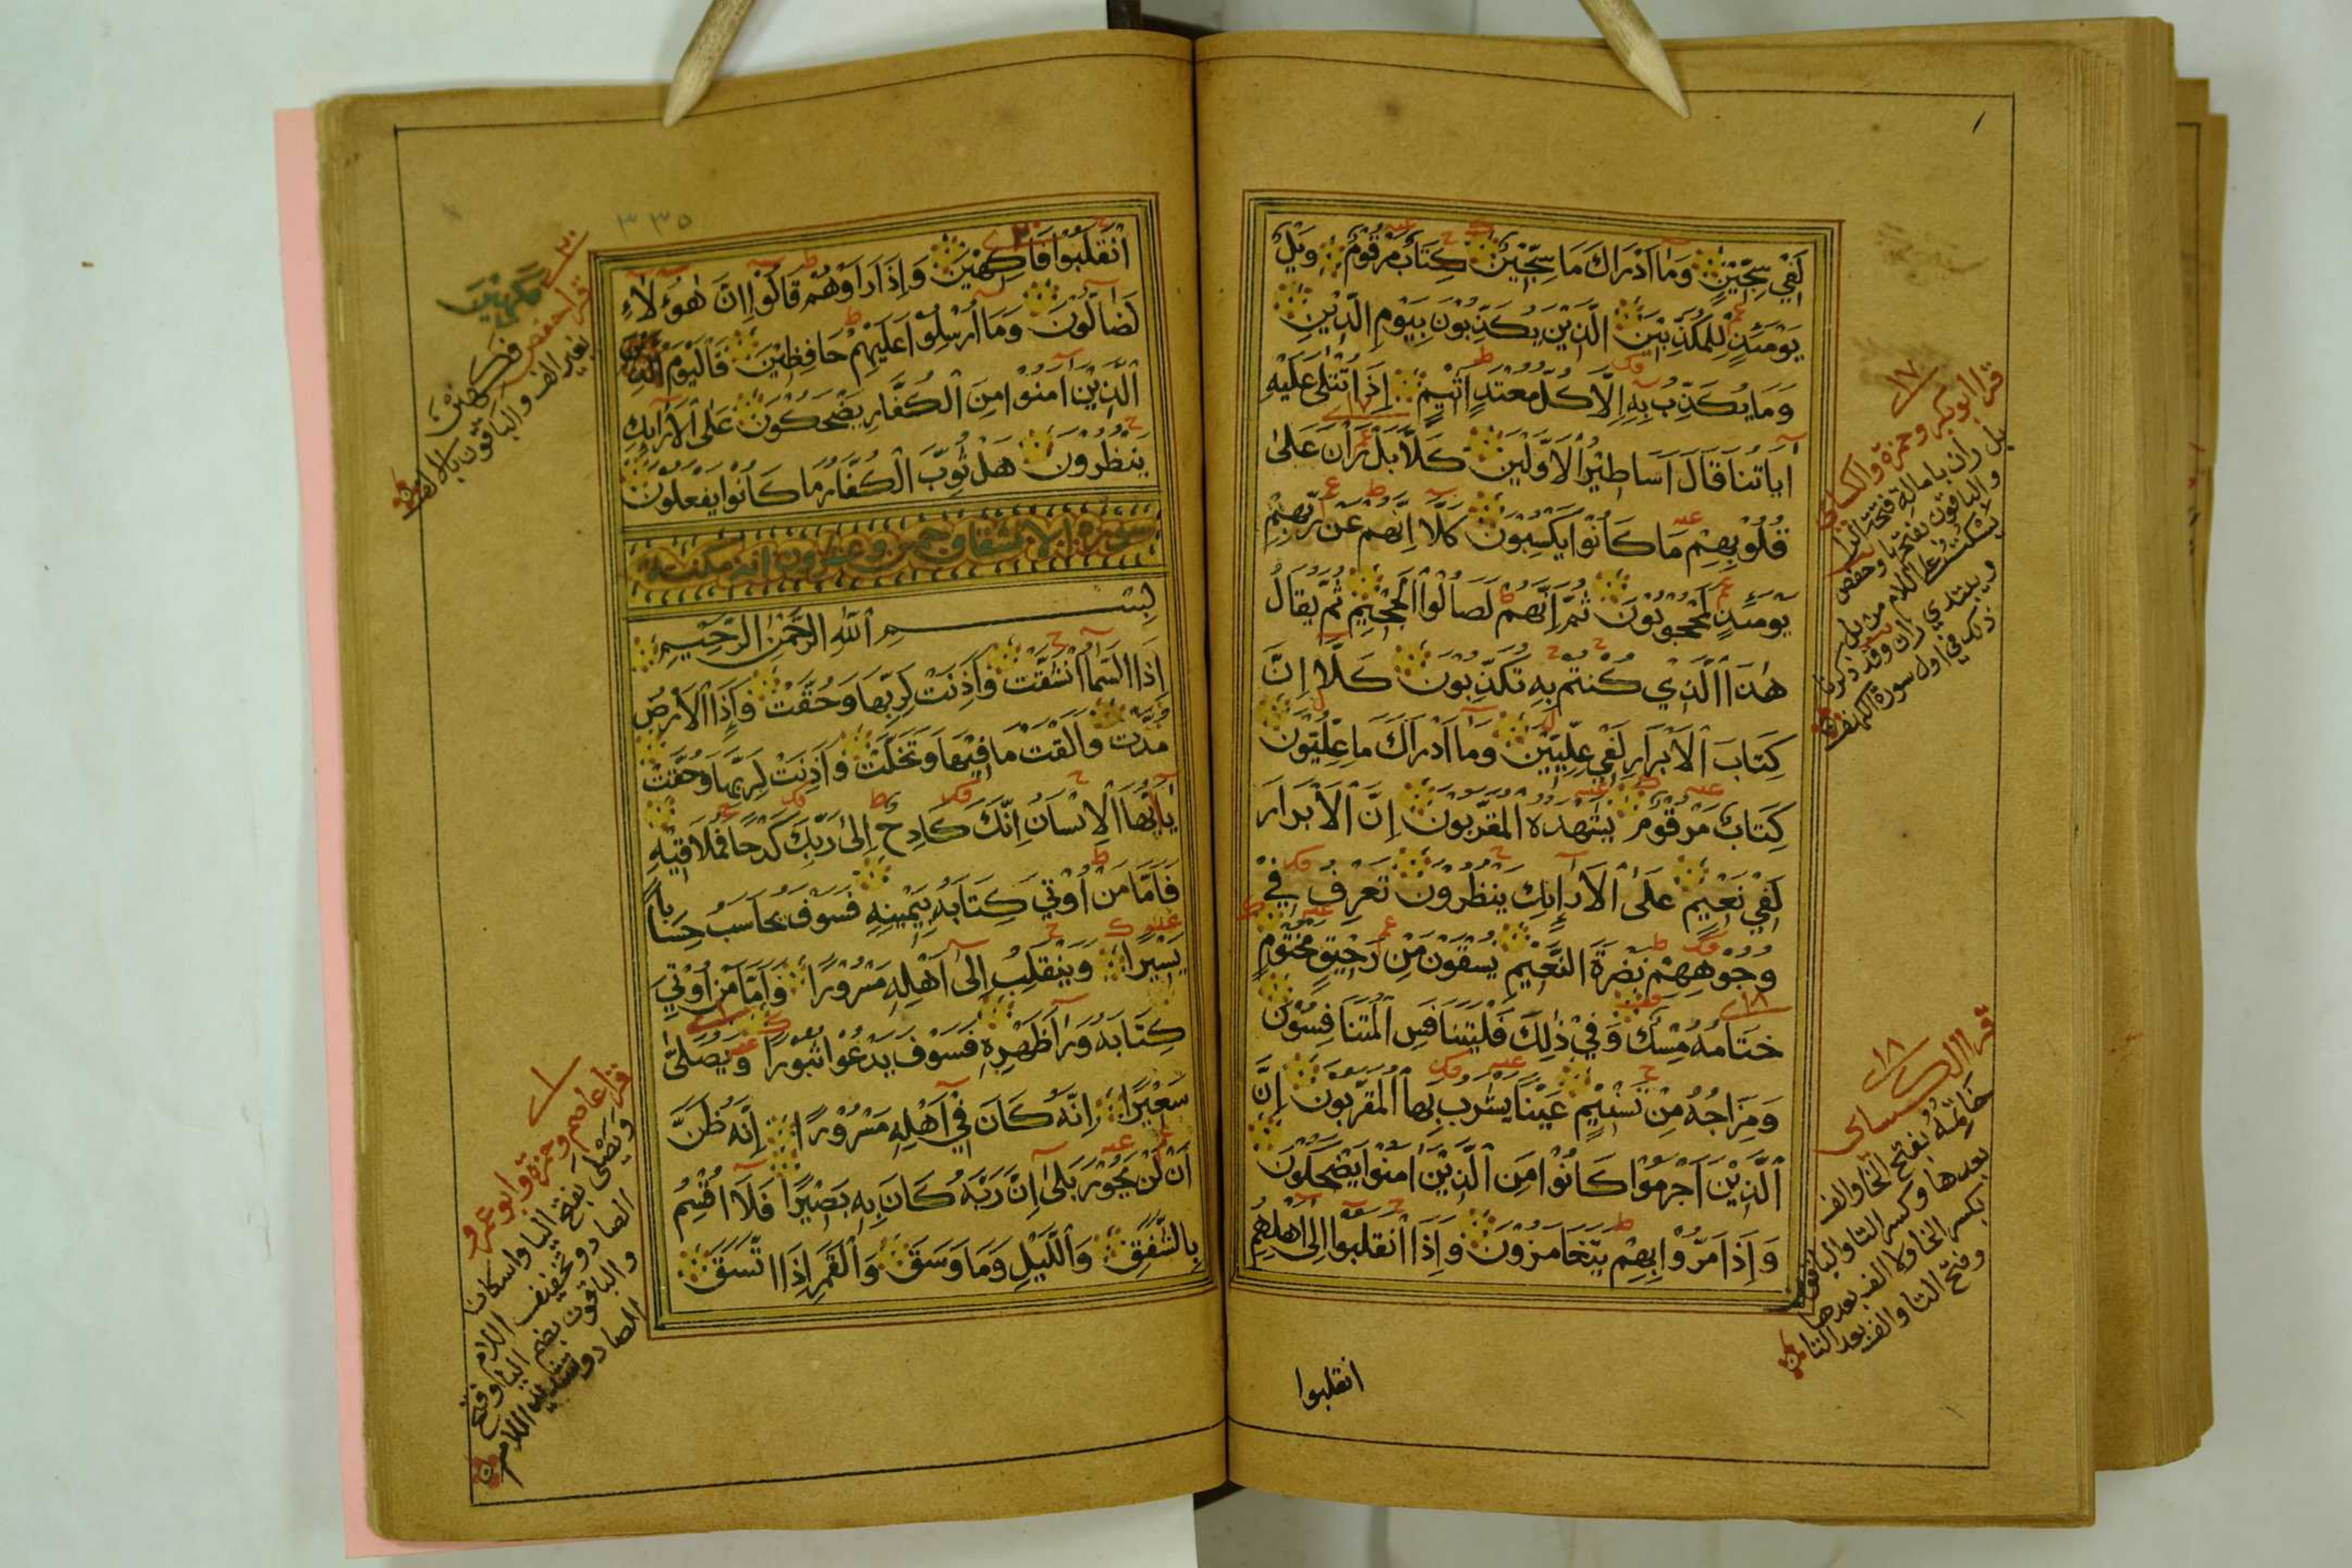 لَفِيْ سِجِّيْنٍ وَمَا اَدْرَاكَ مَا سِجِّيْنٌ كِتَابٌ مَرْقُوْمٌ وَيْلٌ
يَوْمَئِذٍ لِلْمُكَذِّبِيْنَ الَّذِيْنَ يُكَذِّبُونَ بِيَوْمِ الدِّيْنِ
وَمَا يُكَذِّبُ بِهِ اِلَّا كُلُّ مُعْتَدٍ اَثِيْمٍ اِذَا تُتْلٰى عَلَيْهِ
اٰيَاتُنَا قَالَ اَسَاطِيْرُ الْاَوَّلِيْنَ كَلَّا بَلْ رَانَ عَلىٰ
قُلُوْبِهِمْ مَا كَانُوْا يَكْسِبُوْنَ كَلَّا اِنَّهُمْ عَنْ رَبِّهِمْ
يَوْمَئِذٍ لَمَحْجُوبُوْنَ ثُمَّ اِنَّهُمْ لَصَالُوْا الْجَحِيْمِ ثُمَّ يُقَالُ
هٰذَا الَّذِيْ كُنْتُمْ بِهِ تُكَذِّبُوْنَ كَلَّا اِنَّ
كِتَابَ الْاَبْرَارِ لَفِيْ عِلِّيِّيْنَ وَمَا اَدْرَاكَ مَا عِلِّيُّوْنَ
كِتَابٌ مَرْقُوْمٌ يَشْهَدُهُ الْمُقَرَّبُوْنَ اِنَّ الْاَبْرَارَ
لَفِيْ نَعِيْمٍ عَلَى الْاَرَائِكِ يَنْظُرُوْنَ تَعْرِفُ فِيْ
وُجُوْهِهِمْ نَضْرَةَ النَّعِيْمِ يُسْقَوْنَ مِنْ رَحِيْقٍ مَخْتُوْمٍ
خِتَامُهُ مِسْكٌ وَفِيْ ذٰلِكَ فَلْيَتَنَافَسِ الْمُتَنَافِسُوْنَ
وَمِزَاجُهُ مِنْ تَسْنِيْمٍ عَيْنًا يَشْرَبُ بِهَا الْمُقَرَّبُوْنَ اِنَّ
الَّذِيْنَ اَجْرَمُوْا كَانُوْا مِنَ الَّذِيْنَ اٰمَنُوْا يَضْحَكُوْنَ
وَاِذَا مَرُّوْا بِهِمْ يَتَغَامَزُوْنَ وَاِذَا انْقَلَبُوا اِلٰى اَهْلِهِمُ
انقلبوا
١٧
قرا ابو بكر وحمزة والكسائي
بل ران بامالة فتحة الرا
والباقون بفتحها وحفص
يسكت على اللام من بل
ويبتدي ران وقد ذكرنا
ذلك في اول سورة الكهف
١٨
قرا الكسائي
خَاتَمُهُ بفتح الخا والف
بعدها وكسر التا والباقون
بكسر الخا ولا الف بعدها
وفتح التا والف بعد التا
٣٣٥
انْقَلَبُوْا فَاكِهِيْنَ وَاِذَا رَاَوْهُمْ قَالُوْا اِنَّ هٰؤُلَاءِ
لَضَالُّوْنَ وَمَا اُرْسِلُوْا عَلَيْهِمْ حَافِظِيْنَ فَالْيَوْمَ
الَّذِيْنَ اٰمَنُوْا مِنَ الْكُفَّارِ يَضْحَكُوْنَ عَلَى الْاَرَائِكِ
يَنْظُرُوْنَ هَلْ ثُوِّبَ الْكُفَّارُ مَا كَانُوْا يَفْعَلُوْنَ
سورة الانشقاق خمس وعشرون اية مكية
بِسْمِ اللهِ الرَّحْمٰنِ الرَّحِيْمِ
اِذَا السَّمَآءُ انْشَقَّتْ وَاَذِنَتْ لِرَبِّهَا وَحُقَّتْ وَاِذَا الْاَرْضُ
مُدَّتْ وَاَلْقَتْ مَا فِيْهَا وَتَخَلَّتْ وَاَذِنَتْ لِرَبِّهَا وَحُقَّتْ
يَا اَيُّهَا الْاِنْسَانُ اِنَّكَ كَادِحٌ اِلىٰ رَبِّكَ كَدْحًا فَمُلَاقِيْهِ
فَاَمَّا مَنْ اُوْتِيَ كِتَابَهُ بِيَمِيْنِهِ فَسَوْفَ يُحَاسَبُ حِسَابًا
يَسِيْرًا وَيَنْقَلِبُ اِلىٰ اَهْلِهِ مَسْرُوْرًا وَاَمَّا مَنْ اُوْتِيَ
كِتَابَهُ وَرَاءَ ظَهْرِهِ فَسَوْفَ يَدْعُوْا ثُبُوْرًا وَيُصَلّٰى
سَعِيْرًا اِنَّهُ كَانَ فِيْ اَهْلِهِ مَسْرُوْرًا اِنَّهُ ظَنَّ
اَنْ لَنْ يَحُوْرَ بَلىٰ اِنَّ رَبَّهُ كَانَ بِهِ بَصِيْرًا فَلَا اُقْسِمُ
بِالشَّفَقِ وَاللَّيْلِ وَمَا وَسَقَ وَالْقَمَرِ اِذَا اتَّسَقَ
٢٠
قرا حفص فكهين
بغير الف والباقون بالالف
١
قرا عاصم وحمزة وابو عمرو
ويَصْلى بفتح اليا واسكان
الصاد وتخفيف اللام
والباقون بضم اليا وفتح
الصاد وتشديد اللام